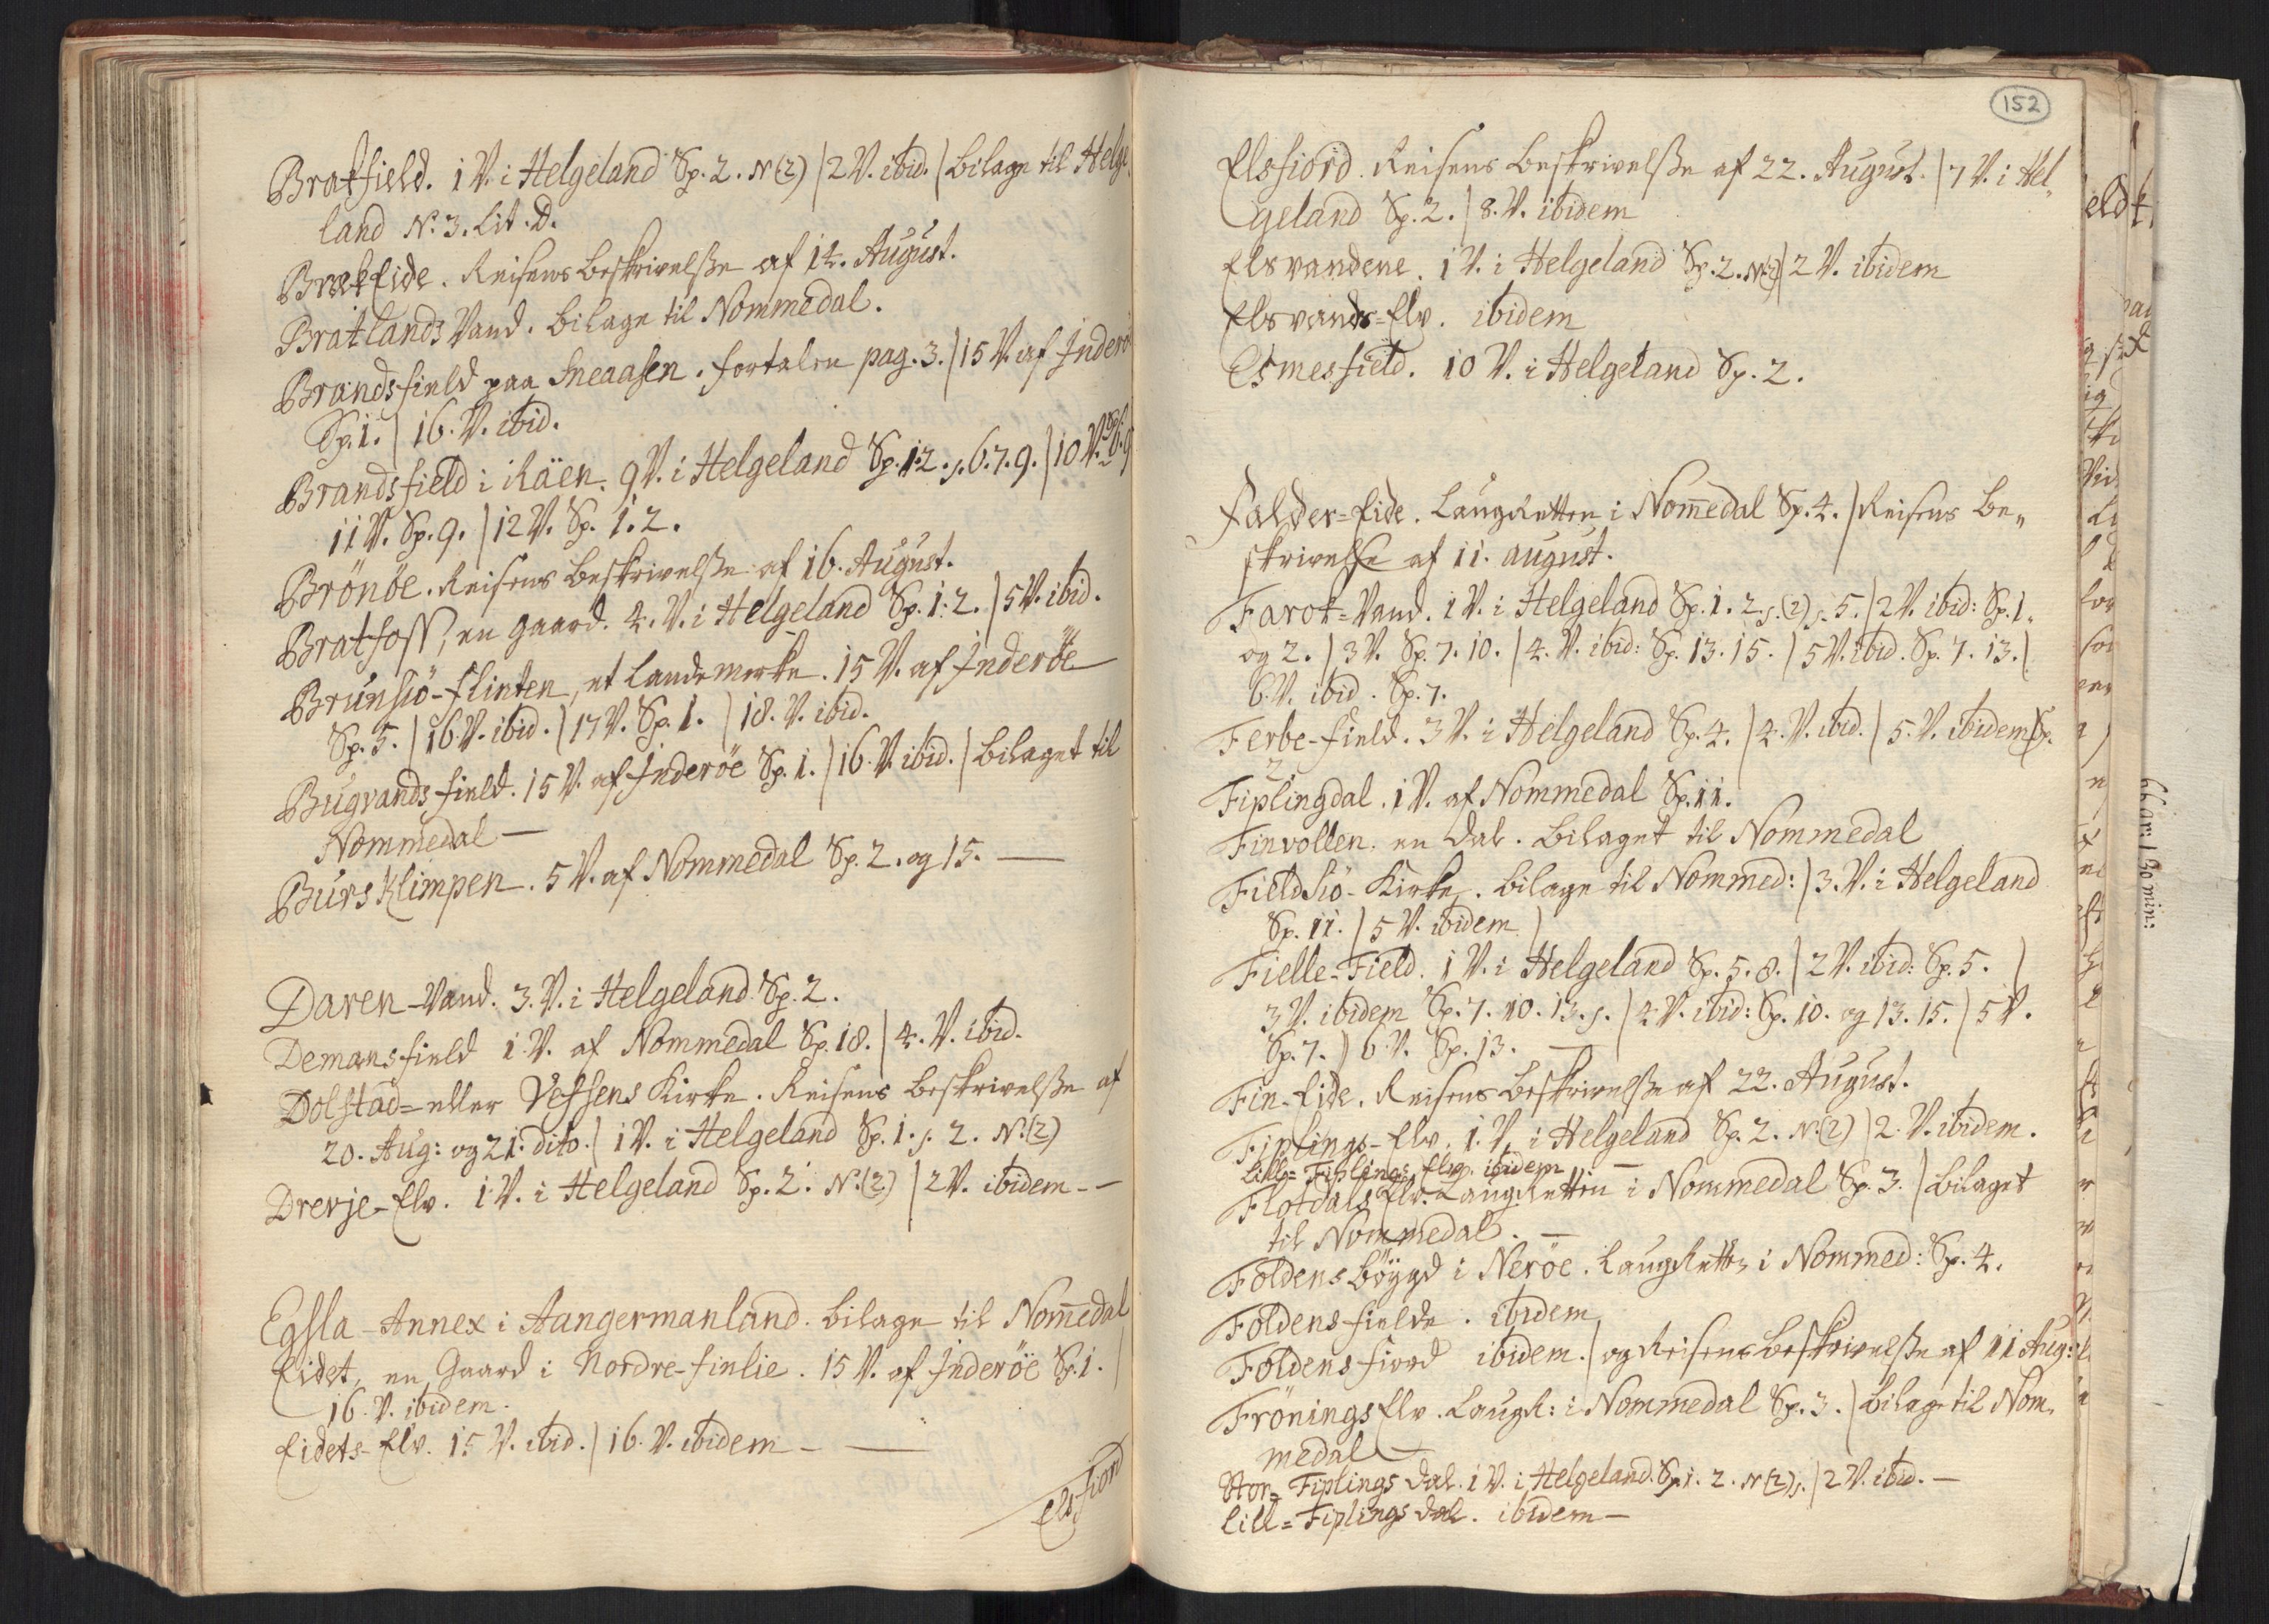 Bratfield. 1 V. i Helgeland Sp. 2. N(2) | 2 V. ibid. | Bilage til Helge
land N. 3. Lit. D.
BrækEide. Reisens Beskrivelsse af 14. August.
Bratlands Vand. Bilage til Nommedal.
Brandsfield paa Sneaasen. fortalen pag. 3. | 15 V. af Inderö
Sp. 1. | 16. V. ibid.
Brandsfield i Räen. 9 V. i Helgeland Sp. 1.2. s. 6.7.9. | 10 V.
11 V. Sp. 9. | 12 V. Sp. 1. 2.
Brönöe. Reisens Beskrivelsse af 16. August.
Bratfoss, en Gaard. 4. V. i Helgeland Sp. 1: 2. | 5 V. ibid.
Brunsiö-Flinten, et Landemerke. 15 V. af Inderöe
Sp. 5. | 16 V. ibid. | 17 V. Sp. 1. | 18. V. ibid.
Bugvands field. 15 V. af Inderöe Sp. 1. | 16. V. ibid. | Bilaget til
Nommedal —
BursKlimpen. 5 V. af Nommedal Sp. 2. og 15. —
Daren-Vand. 3. V. i Helgeland Sp. 2.
Demansfield 1 V. af Nommedal Sp. 18. | 4. V. ibid.
Dolstad= eller Vefsens Kirke. Reisens Beskrivelsse af
20. Aug: og 21. dito. | 1 V. i Helgeland Sp. 1. s. 2. N.(2)
Drevje-Elv. 1 V. i Helgeland Sp. 2. N.(2) | 2 V. ibidem - -
Egsla-Annex i Aangermanland. Bilage til Nom̄edal
Eidet, en Gaard i Nordre-finlie. 15 V. af Inderöe Sp. 1. |
16. V. ibidem.
Eidets-Elv. 15 V. ibid. | 16. V. ibidem - —
Elsfiord
152
Elsfiord. Reisens Beskrivelsse af 22. August. | 7 V. i Hel„
geland Sp. 2. | 8. V. ibidem
Elsvandene. 1 V. i Helgeland Sp. 2. N.(2) | 2 V. ibidem
Elsvands=Elv. ibidem
Esmesfield. 10 V. i Helgeland Sp. 2.
Falder=Eide. LaugRetten i Nom̄edal Sp. 4. | Reisens Be„
skrivelse af 11. august.
Farok=Vand. 1 V. i Helgeland Sp. 1. 2. s. (2) s. 5. | 2 V. ibid: Sp. 1.
og 2. | 3 V. Sp. 7. 10. | 4. V. ibid: Sp. 13. 15. | 5 V. ibid. Sp. 7. 13. |
6. V. ibid. Sp. 7.
Ferbe-field. 3 V. i Helgeland Sp. 4. | 4. V. ibid. | 5. V. ibidem Sp.
2
Fiplingdal. 1 V. af Nommedal Sp. 11.
Finvollen. en dal. Bilaget til Nommedal
FieldSiö-Kirke. Bilage til Nommed: | 3. V. i Helgeland
Sp. 11. | 5 V. ibidem |
Fielle=Field. 1 V. i Helgeland Sp. 5. 8. | 2 V. ibid: Sp. 5. |
3 V. ibidem Sp. 7. 10. 13. s. | 4 V. ibid: Sp. 10. og 13. 15. | 5 V.
Sp. 7. | 6 V. Sp. 13. —
Fin-Eide. Reisens Beskrivelsse af 22. August.
Fiplings-Elv. 1. V. i Helgeland Sp. 2. N.(2) | 2. V. ibidem.
Lille=Fiplings Elv. ibidem —
Flotdals Elv. LaugRetten i Nommedal Sp. 3. | Bilaget
til Nommedal. —
Foldens böygd i Neröe. LaugRetten i Nommed: Sp. 4.
Foldens fielde. ibidem
Foldens fiord ibidem. | og Reisens Beskrivelsse af 11 Aug:
Frönings Elv. LaugR: i Nommedal Sp. 3. | Bilage til Nom„
medal —
Stor=Fiplings dal. 1 V. i Helgeland. Sp. 1. 2. N(2) s. | 2 V. ibid. —
Lill=Fiplings dal. ibidem —